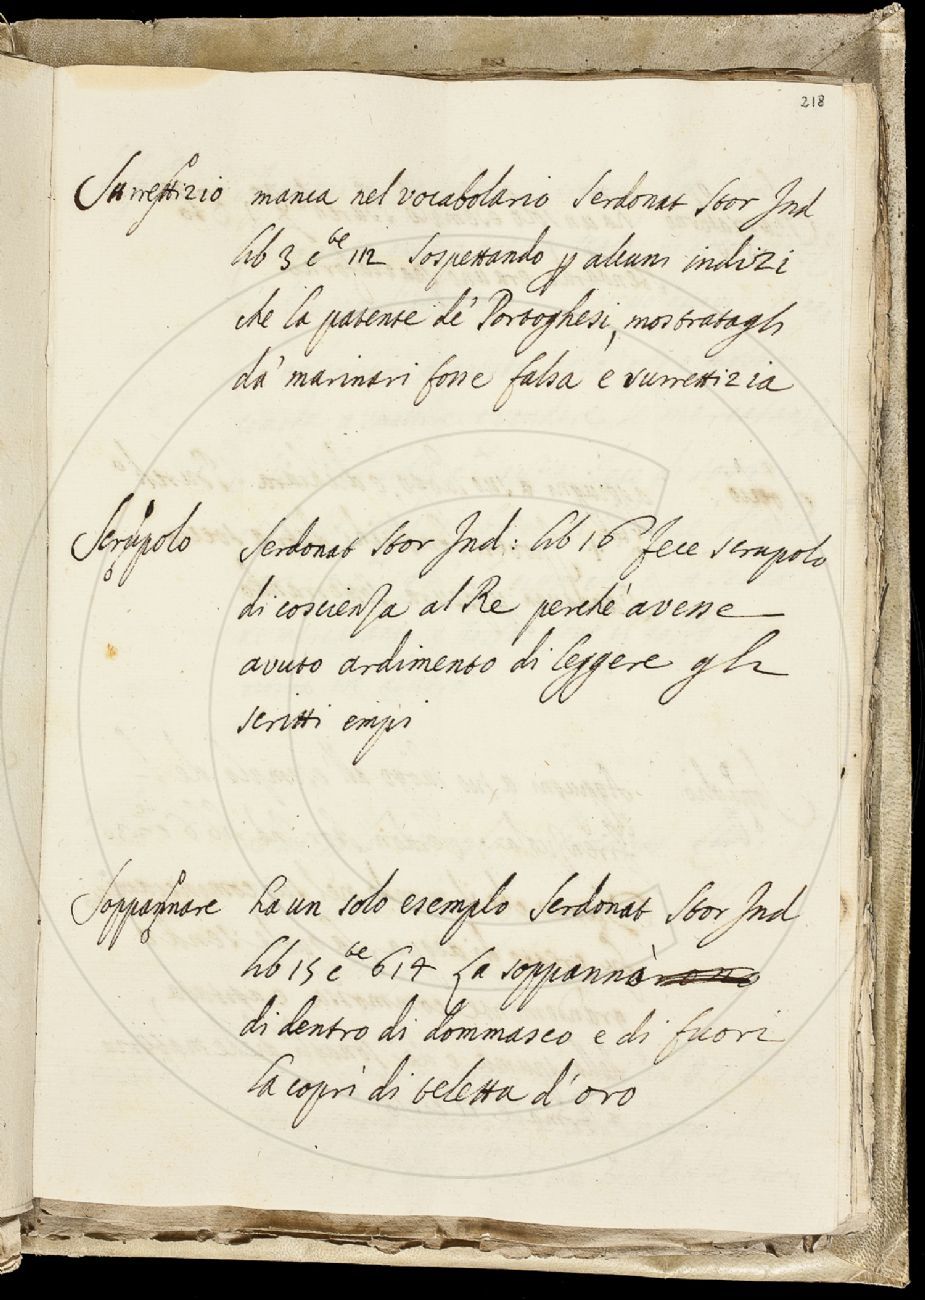 218
Surrettizio manca nel vocabolario Serdonat Stor Ind
lib 3 c^te 112 Sospettando ꝑ alcuni indizi
che la patente de' Portoghesi, mostratagli
da' marinari fosse falsa e surrettizia
Scrupolo Serdonat Stor Ind: lib 16 Fece scrupolo
di coscienza al Re perche' avesse
avuto ardimento di leggere gli
scritti empi
Soppannare ha un solo esempio Serdonat Stor Ind
lib 15 c^te 614 La soppannò
di dentro di dommasco e di fuori
la coprì di teletta d'oro